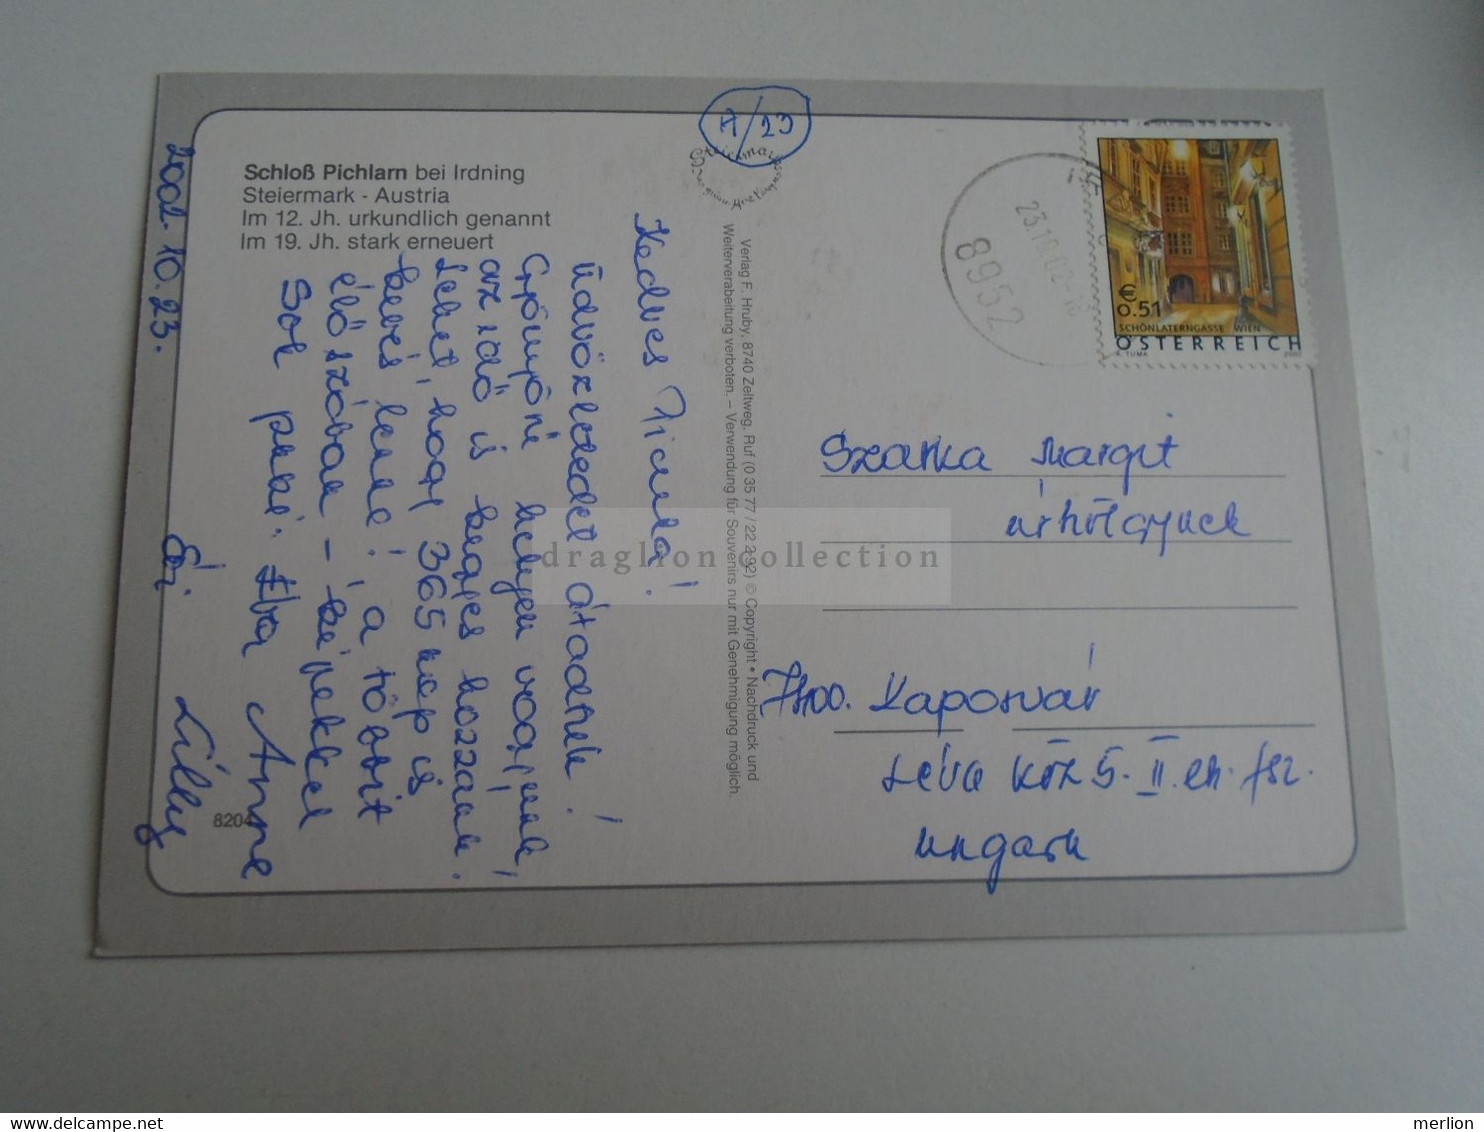 A/23
Schloß Pichlarn bei Irdning
Steiermark - Austria
Im 12. Jh. urkundlich genannt
Im 19. Jh. stark erneuert
2002. 10. 23.
Kedves
üdvözletedet átadtuk!
Gyönyörű helyen vagyunk,
az idő is kegyes hozzánk.
Lehet, hogy 365 nap is
kevés lenne! a többit
élőszóban – képekkel
Sok puszi: Anne
Évi
8204
Verlag F. Hruby, 8740 Zeltweg, Ruf (0 35 77 / 22 2 92) © Copyright • Nachdruck und
Weiterverabeitung verboten. – Verwendung für Souvenirs nur mit Genehmigung möglich.
23.10.02-16
8952
€
0.51
SCHÖNLATERNGASSE WIEN
ÖSTERREICH
A. TUMA 2002
Szarka Margit
úrhölgynek
7400. Kaposvár
Léva köz 5. II. em. fsz.
Ungarn
draglion collection
merlion